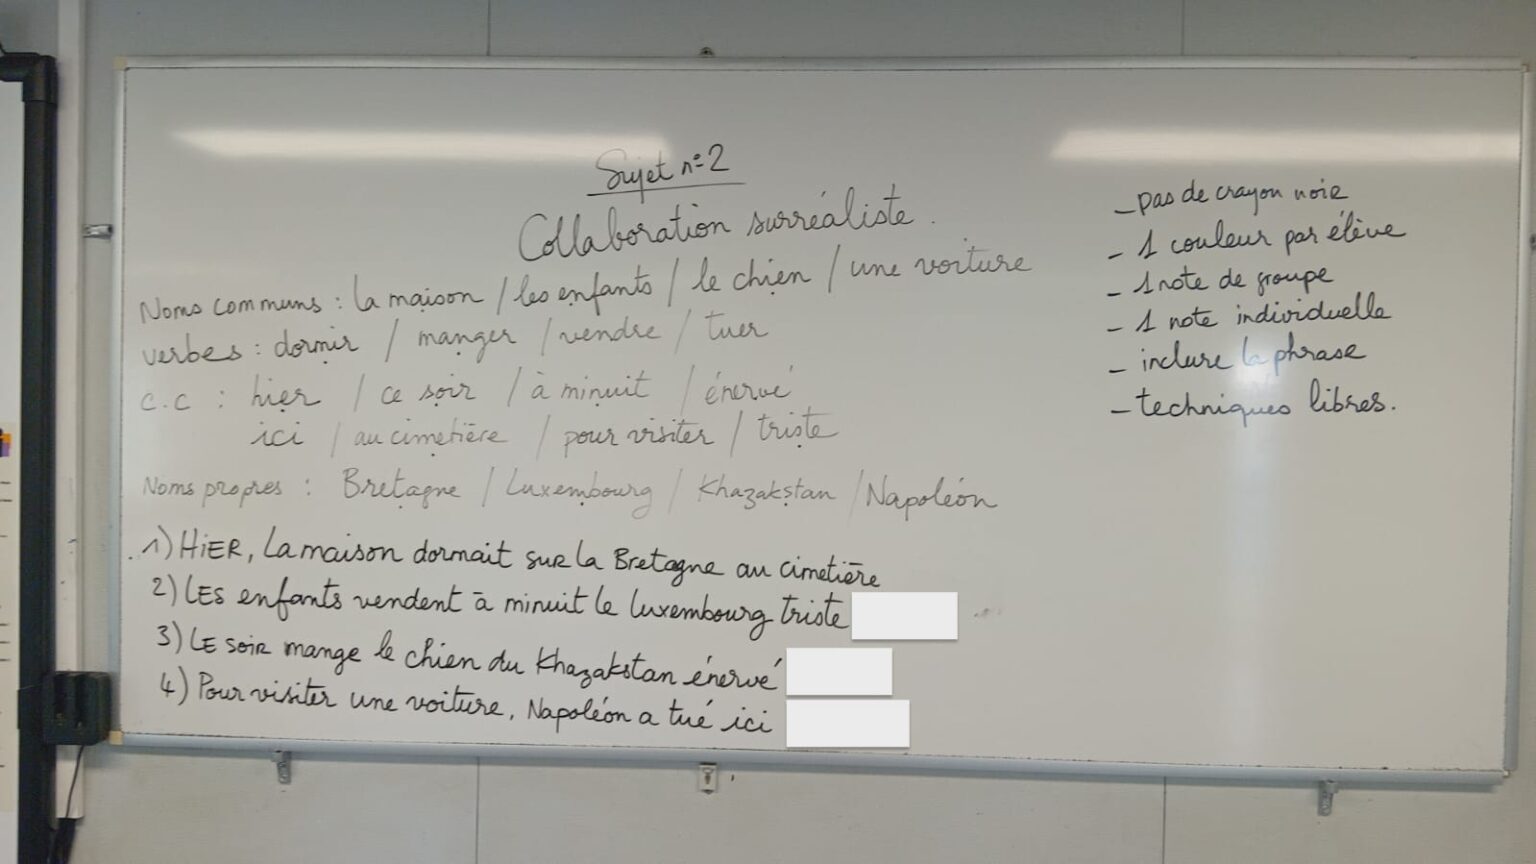 Sujet n°2
Collaboration surréaliste.
Noms communs : la maison / les enfants / le chien / une voiture
verbes : dormir / manger / vendre / tuer
c.c : hier / ce soir / à minuit / énervé
ici / au cimetière / pour visiter / triste
Noms propres : Bretagne / Luxembourg / Khazakstan / Napoléon
1) HiER, la maison dormait sur la Bretagne au cimetière
2) LEs enfants vendent à minuit le luxembourg triste
3) LE soir mange le chien du Khazakstan énervé
4) Pour visiter une voiture, Napoléon a tué ici
- pas de crayon noir
- 1 couleur par élève
- 1 note de groupe
- 1 note individuelle
- inclure la phrase
- techniques libres.